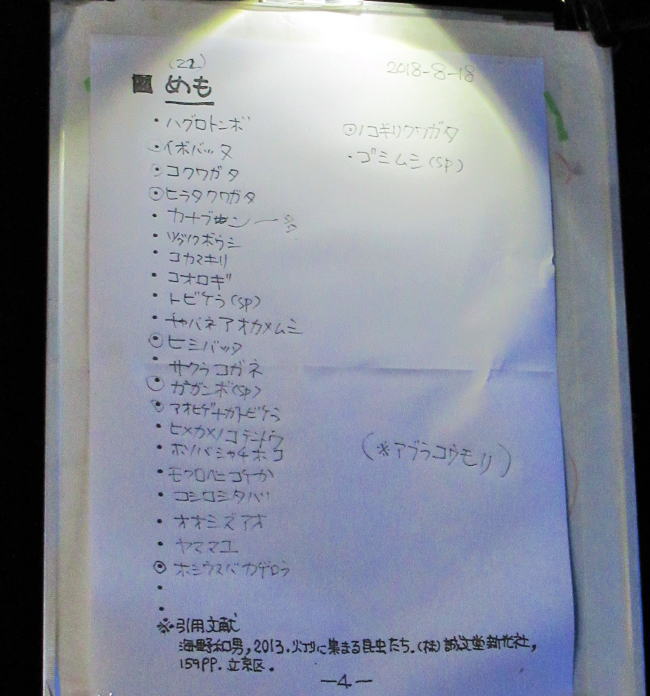 (22)
2018-8-18
■ めも
・ハグロトンボ
・イボバッタ
・コクワガタ
◉ヒラタクワガタ
・カナブン
・ツクツクボウシ
・コカマキリ
・コオロギ
・トビケラ(sp)
・チャバネアオカメムシ
◉ヒシバッタ
・サクラコガネ
◉ガガンボ(sp)
・アオヒゲナガトビケラ
・ヒメカメノコテントウ
・ホソバシャチホコ
・モンクロベニコケガ
・コシロシタバ
・オオミズアオ
・ヤママユ
◉ホシウスバカゲロウ
・
・
◉ノコギリクワガタ
・ゴミムシ(sp)
(※アブラコウモリ)
※引用文献
海野和男,2013.灯りに集まる昆虫たち.(株)誠文堂新光社,
159PP.文京区.
―4―